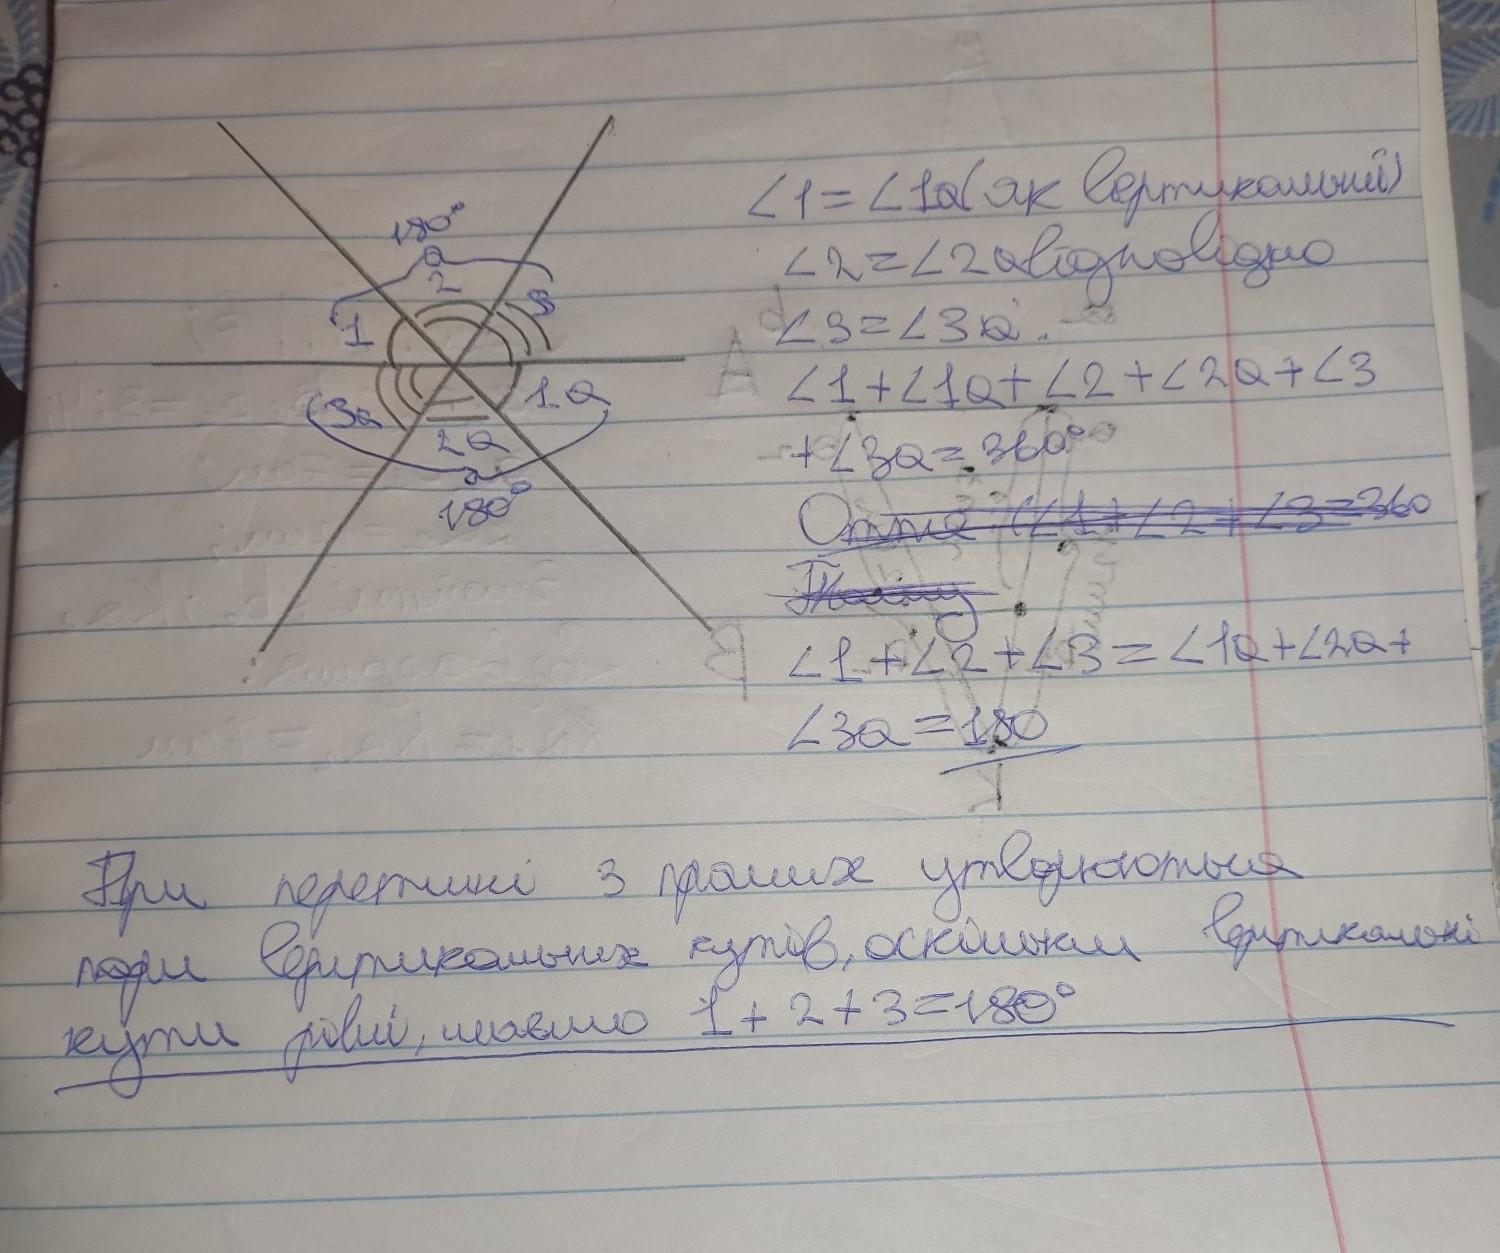 180°
2
3
1
3a
1a
2a
180°
∠1=∠1a(як вертикальний)
∠2=∠2aвідповідно
∠3=∠3a.
∠1+∠1a+∠2+∠2a+∠3
+∠3a=360°
Отже (∠1+∠2+∠3=360
∠1+∠2+∠3=∠1a+∠2a+
∠3a=180
При перетині 3 прямих утворюються
пари вертикальних кутів, оскільки вертикальні
кути рівні, маємо 1+2+3=180°